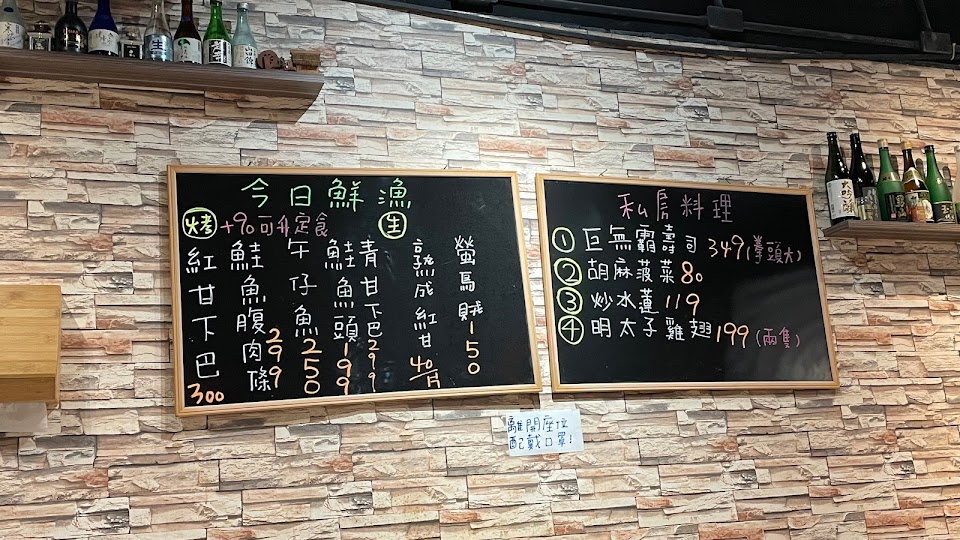 今日鮮漁
烤 +90可升定食
生
紅甘下巴 300
鮭魚腹肉條 299
午仔魚 250
鮭魚頭 199
青甘下巴 299
熟成紅甘 40/片
螢烏賊 150
私房料理
① 巨無霸壽司 349(拳頭大)
② 胡麻菠菜 80
③ 炒水蓮 119
④ 明太子雞翅 199(兩隻)
離開座位
配戴口罩!
大吟醸